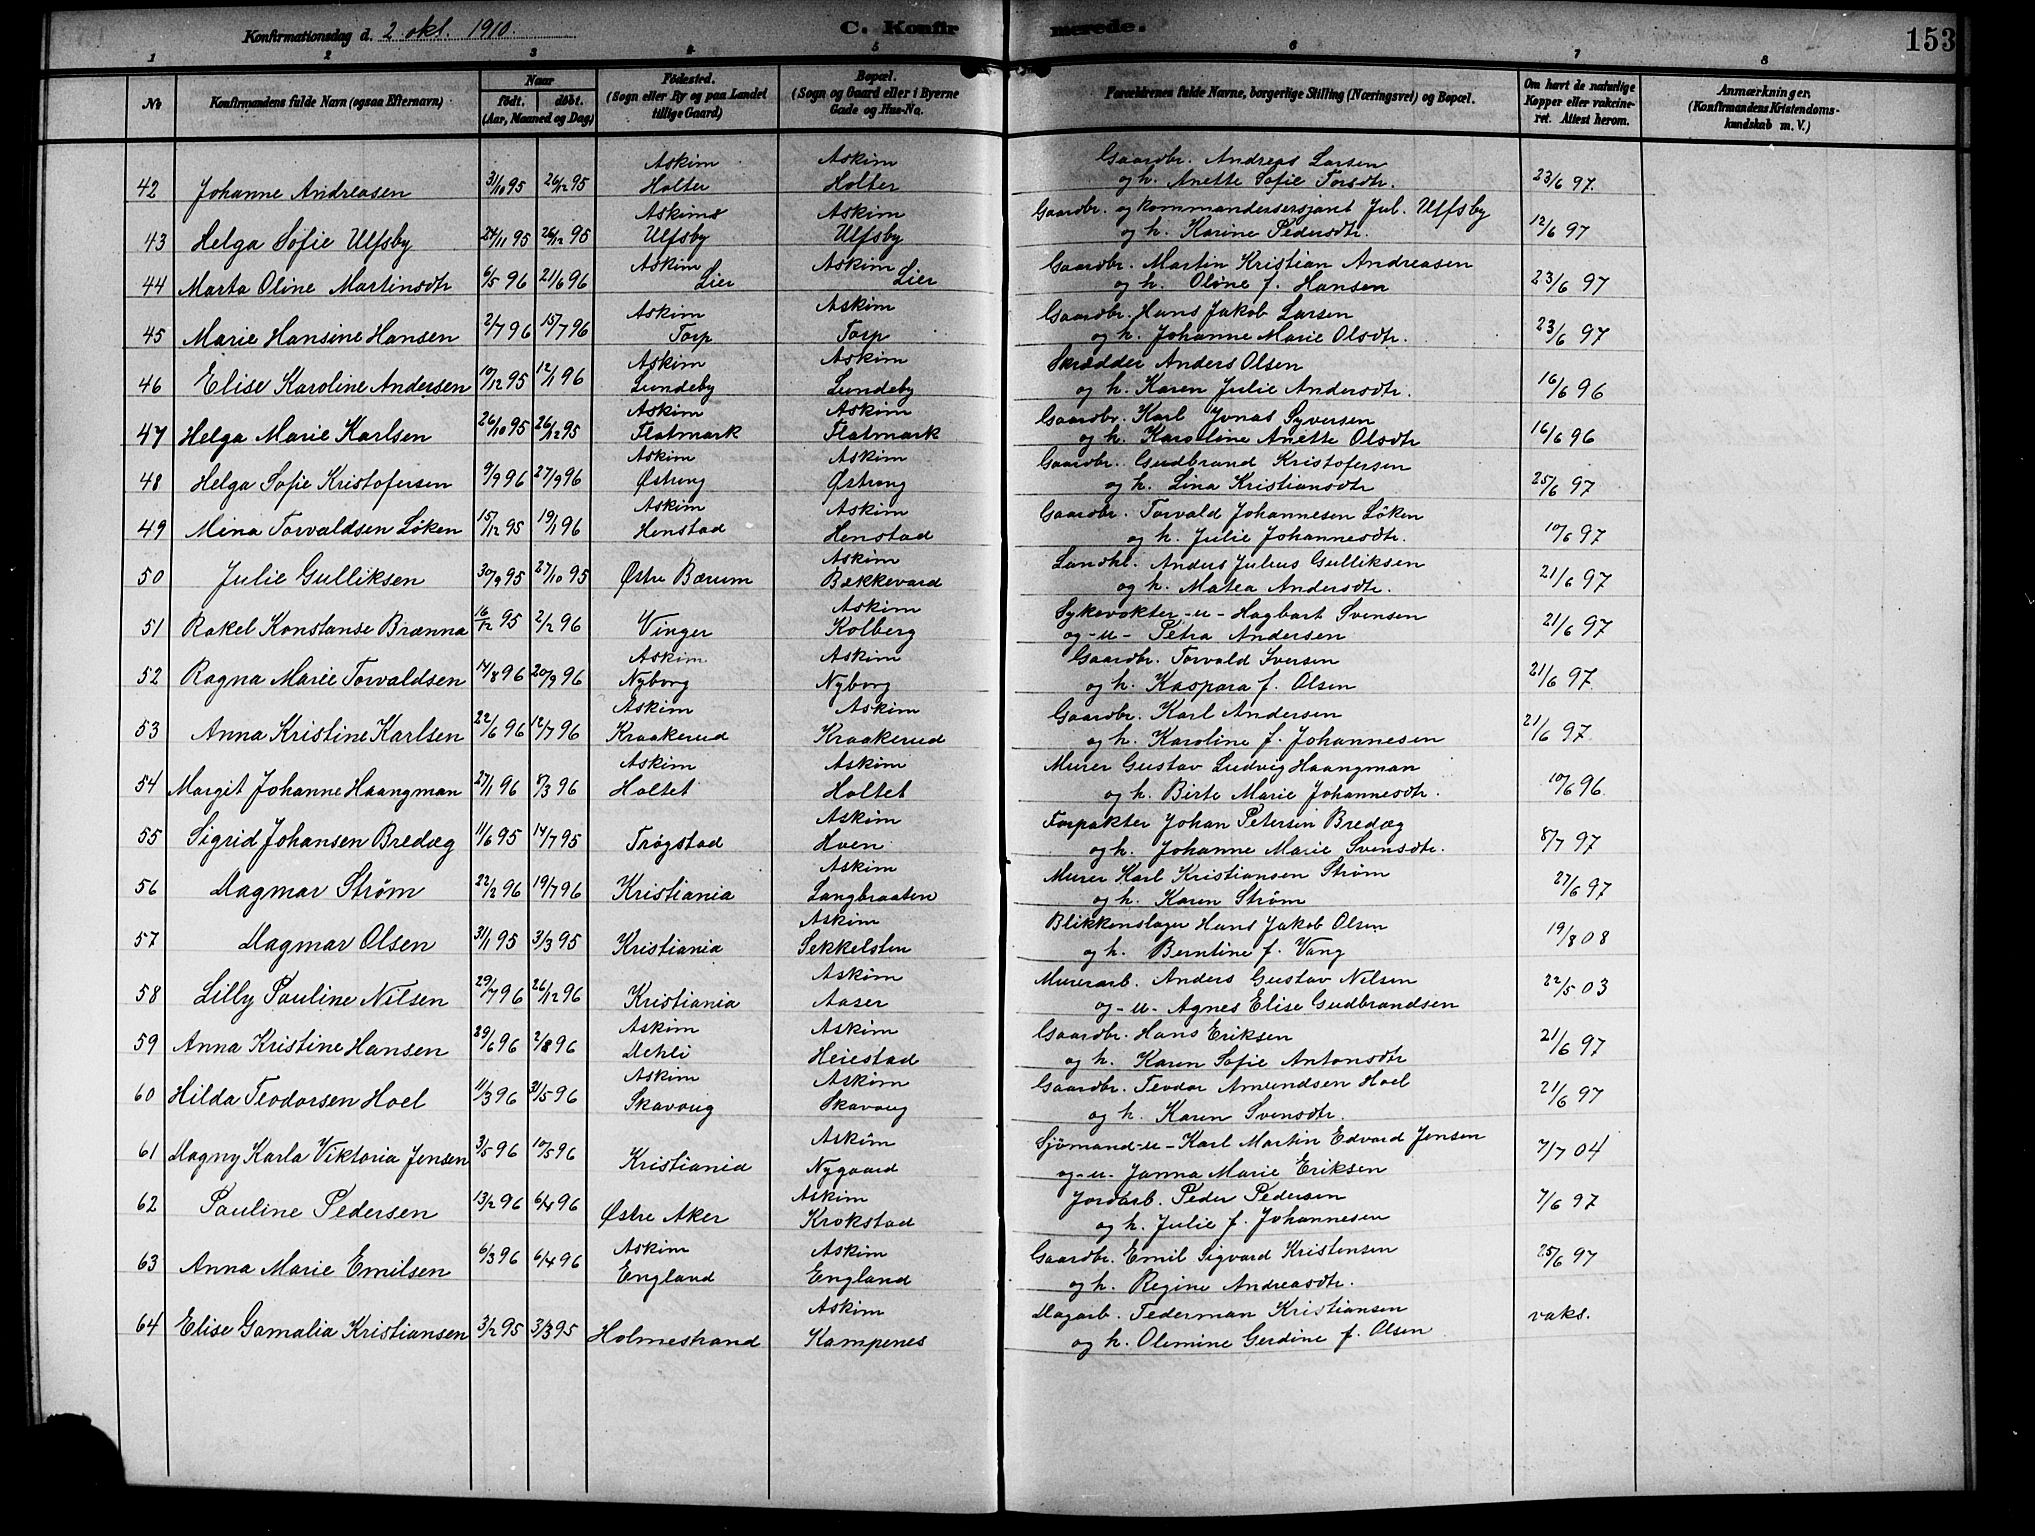 Konfirmationsdag d. 2 okt. 1910. C. Konfirmerede. 153
1 2 3 4 5 6 7 8
No Konfirmandens fulde Navn (ogsaa Efternavn) Naar født. døbt. (Aar, Maaned og Dag) Fødested. (Sogn eller By og paa Landet tillige Gaard) Bopæl. (Sogn og Gaard eller i Byerne Gade og Hus-No. Forældrenes fulde Navne, borgerlige Stilling (Næringsvei) og Bopæl. Om havt de naturlige Kopper eller vakcineret. Attest herom. Anmærkninger. (Konfirmandens Kristendomskundskab m. V.)
Askim Askim Gaardbr. Andreas Larsen
42 Johanne Andreasen 31/10 95 26/12 95 Holter Holter og h. Anette Sofie Torsdtr. 23/6 97.
Askims Askim Gaardbr. og kommandersersjant Jul. Ulfsby
43 Helga Sofie Ulfsby 24/11 95 26/12 95 Ulfsby Ulfsby og h. Karine Pedersdtr. 12/6 97
Askim Askim Gaardbr. Martin Kristian Andreasen
44 Marta Oline Martinsdtr 6/5 96 21/6 96 Lier Lier og h. Oline f. Hansen 23/6 97
Askim Askim Gaardbr. Hans Jakob Larsen
45 Marie Hansine Hansen 2/7 96 15/7 96 Torp Torp og h. Johanne Marie Olsdtr. 23/6 97
Askim Askim Skrædder Anders Olsen
46 Elise Karoline Andersen 10/12 95 12/1 96 Lundeby Lundeby og h. Karen Julie Andersdtr. 16/6 96
Askim Askim Gaardbr. Karl Jonas Syversen
47 Helga Marie Karlsen 26/10 95 26/12 95 Flatmark Flatmark og h. Karoline Anette Olsdtr 16/6 96
Askim Askim Gaardbr. Gudbrand Kristofersen
48 Helga Sofie Kristofersen 9/9 96 27/9 96 Østreng Østreng og h. Lina Kristiansdtr 25/6 97
Askim Askim Gaardbr. Torvald Johannesen Løken
49 Mina Torvaldsen Løken 15/12 95 19/1 96 Henstad Henstad og h. Julie Johannesdtr. 10/6 97
Askim Landhl. Anders Julius Gulliksen
50 Julie Gulliksen 30/9 95 27/10 95 Østre Bærum Bækkevard og h. Matea Andersdtr. 21/6 97
Askim Sykevokter -u- Hagbart Svensen
51 Rakel Konstanse Brænna 16/12 95 2/2 96 Vinger Kolberg og -u- Petra Andersen 21/6 97
Askim Askim Gaardbr. Torvald Iversen
52 Ragna Marie Torvaldsen 14/8 96 20/9 96 Nyborg Nyborg og h. Kaspara f. Olsen 21/6 97.
Askim Askim Gaardbr. Karl Andersen
53 Anna Kristine Karlsen 22/6 96 12/7 96 Kraakerud Kraakerud og h. Karoline f. Johannesen 21/6 97.
Askim Askim Murer Gustav Ludvig Haangman
54 Margit Johanne Haangman 27/1 96 8/3 96 Holtet Holtet og h. Birte Marie Johannesdtr. 10/6 96.
Askim Forpakter Johan Petersen Bredæg
55 Sigrid Johansen Bredæg 11/6 95 14/7 95 Trøgstad Hven og h. Johanne Marie Svensdtr. 8/7 97
Askim Murer Karl Kristiansen Strøm
56 Dagmar Strøm 22/2 96 19/7 96 Kristiania Langbraaten og h. Karen Strøm 27/6 97
Askim Blikkenslager Hans Jakob Olsen
57 Dagmar Olsen 31/1 95 3/3 95 Kristiania Sekkelsten og h. Berntine f. Vang 19/8 08
Askim Murerarb. Anders Gustav Nilsen
58 Lilly Pauline Nilsen 29/7 96 26/12 96 Kristiania Aaser og -u- Agnes Elise Gudbrandsen 22/5 03
Askim Askim Gaardbr. Hans Eriksen
59 Anna Kristine Hansen 29/6 96 2/8 96 Dehli Heiestad og h. Karen Sofie Antonsdtr 21/6 97
Askim Askim Gaardbr. Teodor Amundsen Hoel
60 Hilda Teodorsen Hoel 11/3 96 31/5 96 Skavoug Skavoug og h. Karen Svensdtr. 21/6 97
Askim Sjømand -u- Karl Martin Edvard Jensen
61 Dagny Karla Viktoria Jensen 3/5 96 10/5 96 Kristiania Nygaard og -u- Janna Marie Eriksen 7/7 04
Askim Jordarb. Peder Pedersen
62 Pauline Pedersen 13/2 96 6/4 96 Østre Aker Krokstad og h. Julie f. Johannesen 7/6 97
Askim Askim Gaardbr. Emil Sigvard Kristensen
63 Anna Marie Emilsen 6/3 96 6/4 96 England England og h. Regine Andreasdtr. 25/6 97
Askim Dagarb. Federman Kristiansen
64 Elise Gamalia Kristiansen 3/2 95 3/3 95 Holmestrand Kampenes og h. Olemine Gerdine f. Olsen vaks.